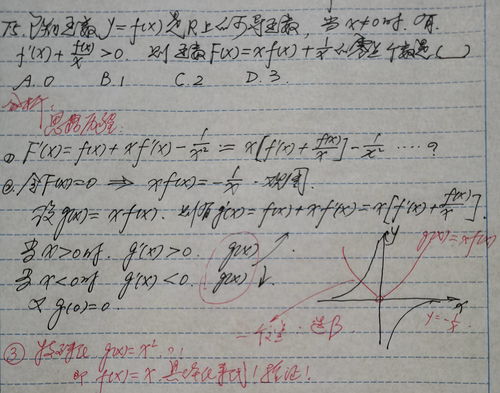 75.已知函数 y=f(x) 是R上的可导函数, 当 x≠0时, 有
f'(x)+\frac{f(x)}{x}>0. 则函数F(x)=xf(x)+\frac{1}{x}的零点个数是( )
A. 0 B. 1 C. 2 D. 3.
分析:
思路历程:
① F'(x)=f(x)+xf'(x)-\frac{1}{x^2}=x[f'(x)+\frac{f(x)}{x}]-\frac{1}{x^2} ····?
②. 令F(x)=0 ⟹ xf(x)=-\frac{1}{x}
设g(x)=xf(x). 则有g'(x)=f(x)+xf'(x)=x[f'(x)+\frac{f(x)}{x}].
当x>0时. g'(x)>0. g(x) ↗
当x<0时 g'(x)<0. g(x) ↓.
又 g(0)=0.
一个交点. 选B
y
g(x)=xf(x)
x
y=-\frac{1}{x}
③ 特殊化 g(x)=x^2 ?!
即 f(x)=x. 验证!